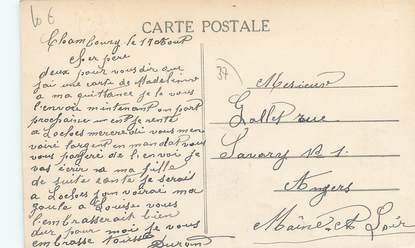 10 €
CARTE POSTALE
37
Chambourg le 17 Aout
Cher père
deux pour vous dire que
j'ai une carte de Madeleine
a ma quittance je le vous
l'envoie mintenant on port
prochaine est je rente
a Loches mercredi vous men
voire l'argent en mandat vous
vous payere de l'envoi je
vas écrir a ma fille
de suite conte je serais
a Loches j'en voirai ma
Louise vous
l'embrasserait bien
dur pour moi je vous
embrasse tousse
Durvin
Monsieur
Gallet rue
Savary N 1.
Angers
Maine et Loir